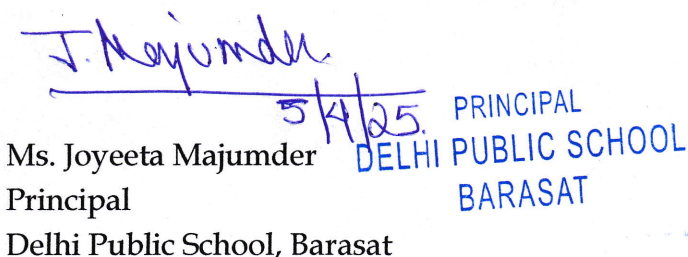 J. Majumder.
5/4/25.
PRINCIPAL
DELHI PUBLIC SCHOOL
BARASAT
Ms. Joyeeta Majumder
Principal
Delhi Public School, Barasat